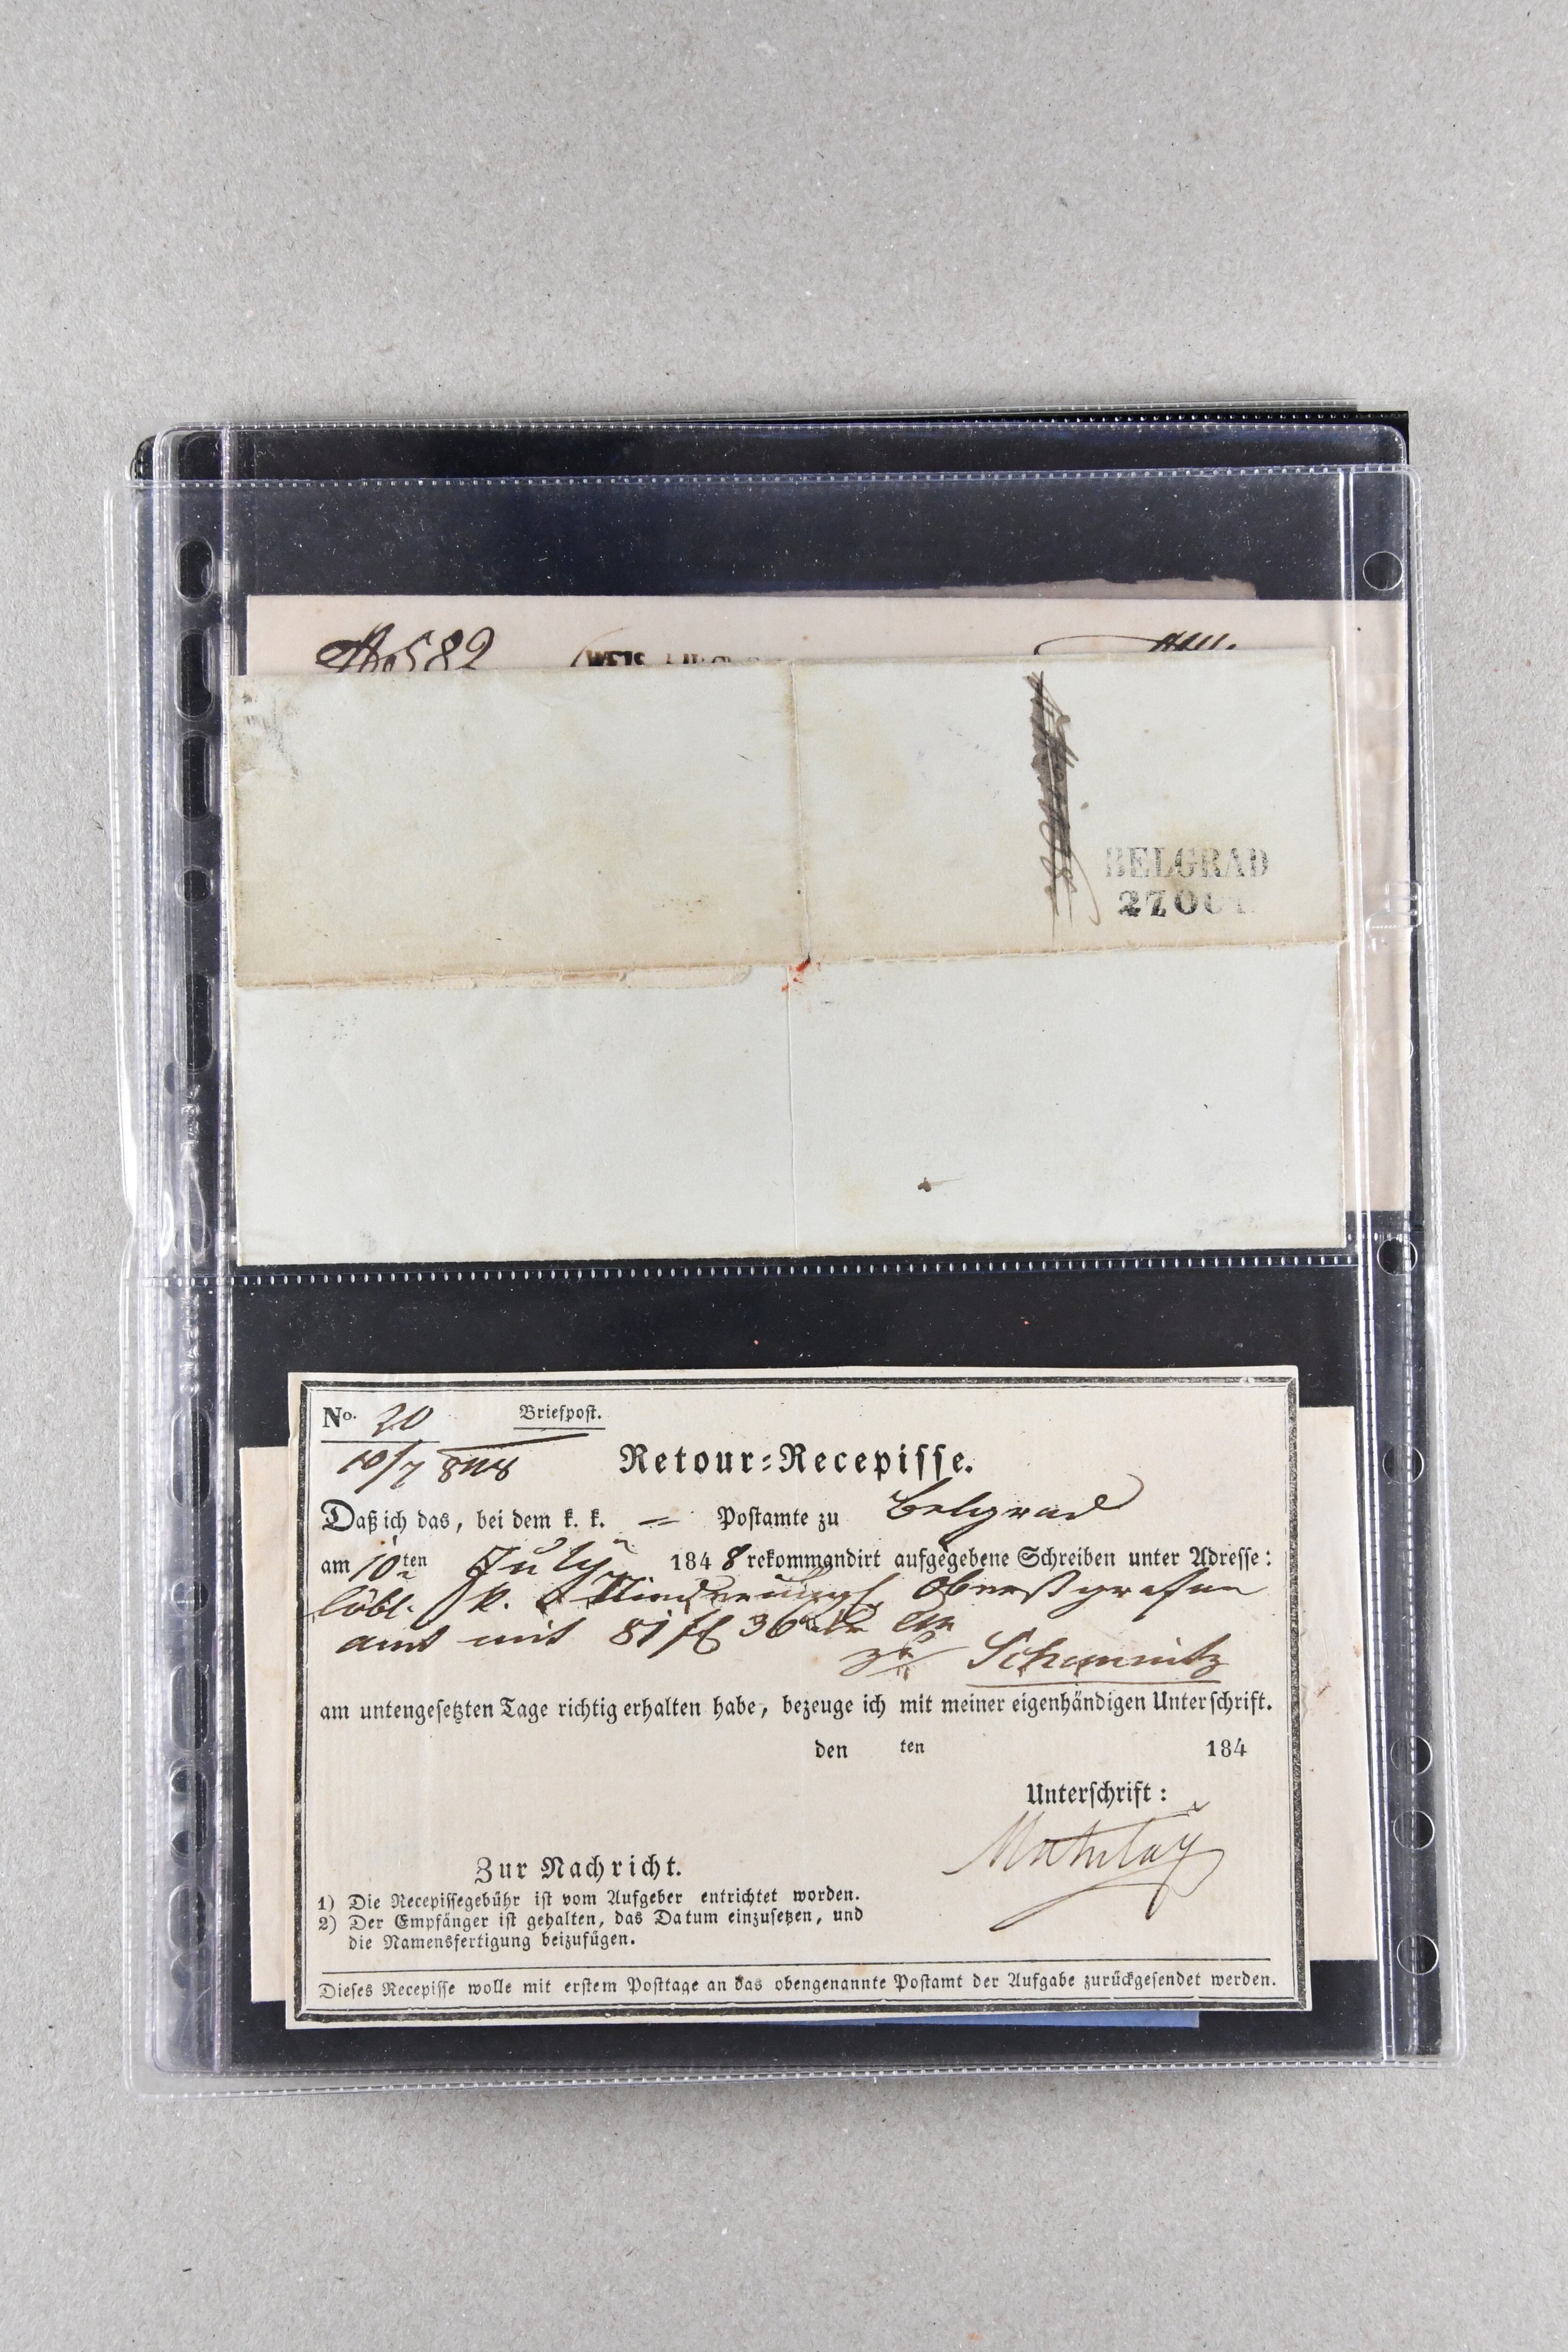 No 582
BELGRAD
27 OCT.
No. 20
Briefpost.
10/7 848
Retour=Recepisse.
Daß ich das, bei dem k. k. = Postamte zu Belgrad
am 10ten July 1848 rekommandirt aufgegebene Schreiben unter Adresse:
löbl. k. Oberstgrafen
amt mit 81 fl 36
zu Schemnitz
am untengesetzten Tage richtig erhalten habe, bezeuge ich mit meiner eigenhändigen Unterschrift.
den ten 184
Unterschrift:
Zur Nachricht.
1) Die Recepissegebühr ist vom Aufgeber entrichtet worden.
2) Der Empfänger ist gehalten, das Datum einzusetzen, und
die Namensfertigung beizufügen.
Dieses Recepisse wolle mit erstem Posttage an das obengenannte Postamt der Aufgabe zurückgesendet werden.